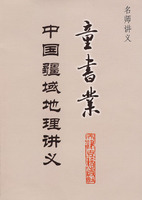 名师讲义
童书业
中国疆域地理讲义